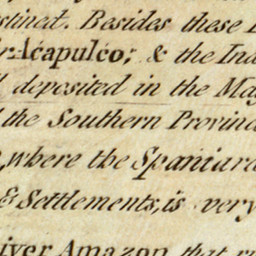 stined. Besides these
Acapulco; & the In
deposited in the Ma
the Southern Provinc
where the Spaniard
& Settlements, is very
iver Amazon that